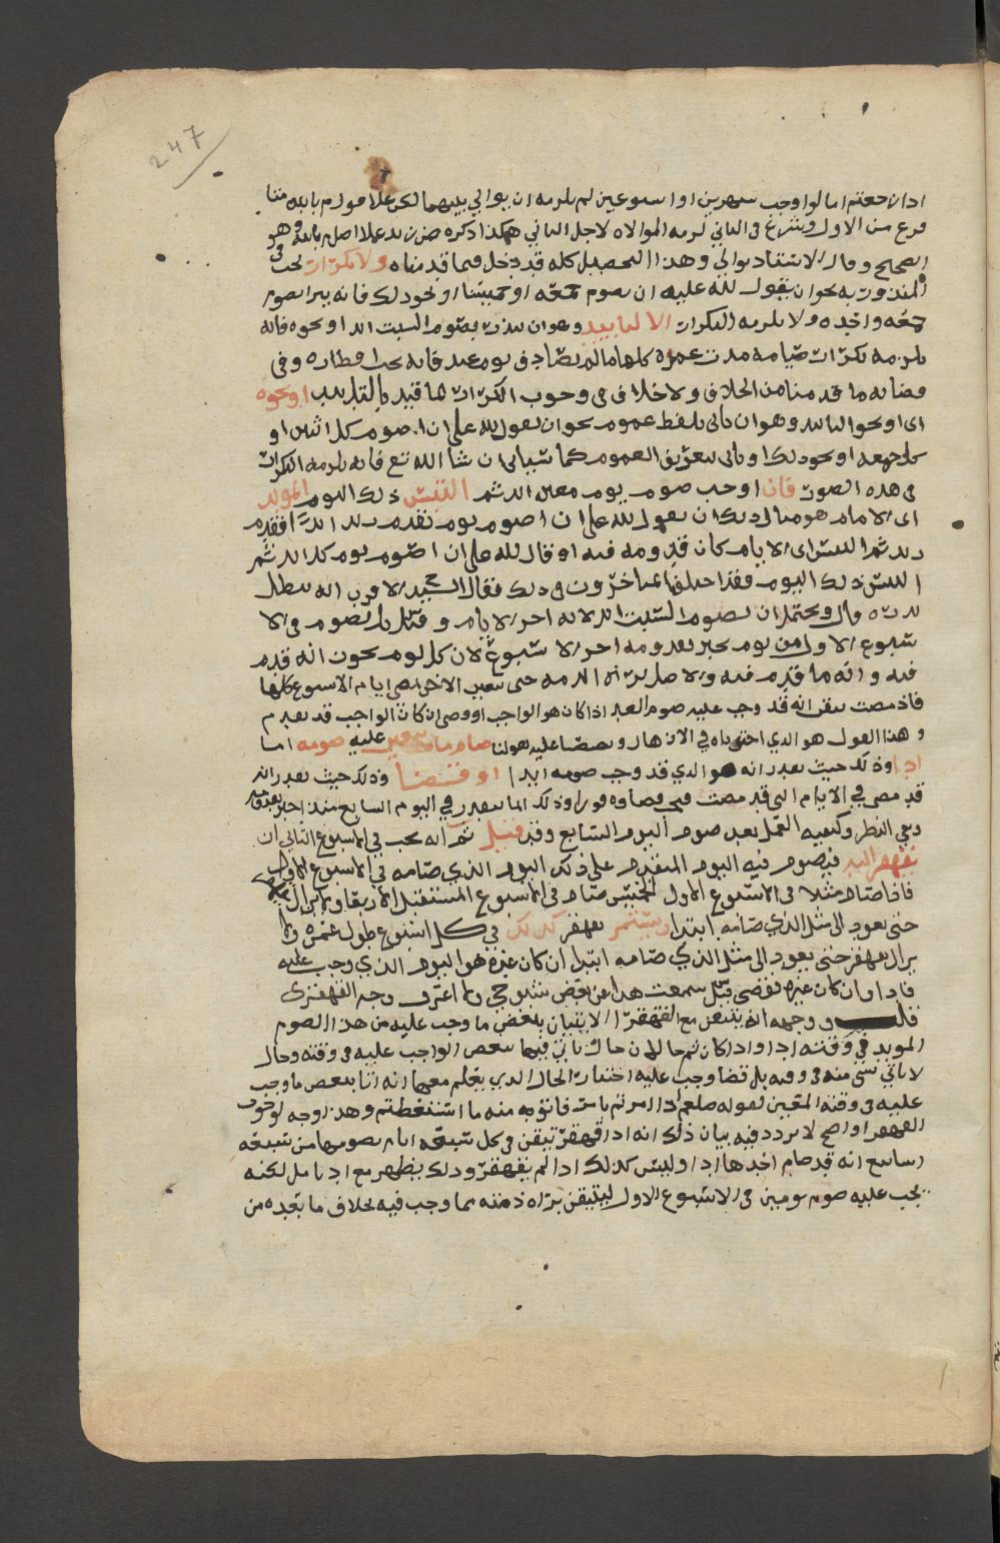 247
اذا نحعتم اما لو اوجب شهرين او اسبوعين لم يلزمه ان يوالي بينهما لكن
فرغ من الاول وشرع فى الثاني لزمه الموالاه لاجل الثاني هكذا ذكره
الصحيح وقال الاستاذ يوالي وهذا التحصيل كله قد دخل فيما قدمناه ولا تكرار تحت
المنذور به نحو ان يقول لله عليه ان يصوم جمعه او خميسا او نحو ذلك فانه يبرا بصوم
جمعه واحده ولا يلزمه التكرار الا لتابيد وهو ان ينذر بصوم السبت ابدا او نحوه فانه
يلزمه تكرار صيامه مدت عمره كلها ما لم يصادف يوم عيد فانه يجب افطاره وفي
قضائه ما قدمنا من الخلاف ولا خلاف في وجوب التكرار لما قيد بالتابيد او نحوه
اى او نحو التابيد وهو ان ياتى بلفظ عموم نحو ان يقول لله علي ان اصوم كل اثنين او
كل جمعه او نحو ذلك او ياتى بتعريف العموم كما سياتى ان شا الله تع فانه يلزمه التكرار
فى هذه الصور فان اوجب صوم يوم معين ابدا ثم التبس ذلك اليوم المؤبد
اى الامام هو مثال ذلك ان يقول لله علي ان اصوم يوم يقدم زيد ابدا فقدم
زيد ثم التبس اى الايام كان قدومه فيه او قال لله علي ان اصوم يوم كذا ابدا ثم
التبس ذلك اليوم فقد اختلف المتاخرون فى ذلك فقال السيد الاقرب انه يبطل
نذره قال ويحتمل ان يصوم السبت ابدا لانه اخر الايام وقيل بل يصوم فى الا
سبوع الاول من يوم يخبر بقدومه اخر الاسبوع لان كل يوم يجوز انه قدم
فيه وانه ما قدم فيه والاصل براه الذمه حتى تمضى ايام الاسبوع كلها
فاذا مضت تيقن انه قد وجب عليه صوم
وهذا القول هو الذي اخترناه في الازهار ونصصنا عليه بقولنا صام ما عليه صومه اما
ادا وذلك حيث يقدر انه هو الذي قد وجب صومه ابدا او قضا وذلك حيث يقدر انه
قد مضى في الايام التى قد مضت فيجب قضاوه فورا وذلك انما يتقدر في اليوم السابع
وبقي النظر وكيفيه العمل بعد صوم اليوم السابع وقد قيل ثم انه يجب في الاسبوع الثاني ان
يقهقر اليه فيصوم فيه اليوم المتقدم على ذلك اليوم الذي صامه في الاسبوع الاول
فاذا صام مثلا فى الاسبوع الاول الخميس صام فى الاسبوع المستقبل الاربعا ولا يزال
حتى يعود الى مثل الذي صامه ابتدا ويستمر يقهقر كذلك في كل اسبوع طول عمره ولا
يزال يقهقر حتى يعود الى مثل الذي صامه ابتدا ان كان غيره هو اليوم الذي وجب عليه
فادا وان كان غيره فقضى قيل سمعت هذا عن بعض شيوخي ولا اعترف وجه القهقرى
قلت ووجهه انه يتيقن مع القهقرا الاتيان ببعض ما وجب عليه من هذا الصوم
المؤبد فى وقته ادا واذا كان ثم حالان حال ياتي فيها ببعض الواجب عليه فى وقته وحال
لا ياتي بشى منه فى وقته بل قضا وجب عليه اختيار الحال الذي يعلم معها انه اتا ببعض ما وجب
عليه فى وقته المتعين لقوله صلعم اذا امرتم بامر فاتوا به منه ما استطعتم وهذا وجه لوجوب
القهقرا واضح لا تردد فيه بيان ذلك انه اذا قهقر تيقن فى كل سبعه ايام يصومها من سبعه
اسابيع انه قد صام احدها ادا وليس كذلك اذا لم يقهقر وذلك يظهر مع ادنا تامل لكنه
يجب عليه صوم يومين فى الاسبوع الاول ليتيقن براه ذمته مما وجب فيه بخلاف ما بعده من